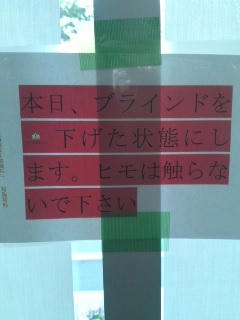 本日、ブラインドを
下げた状態にし
ます。ヒモは触らな
いで下さい